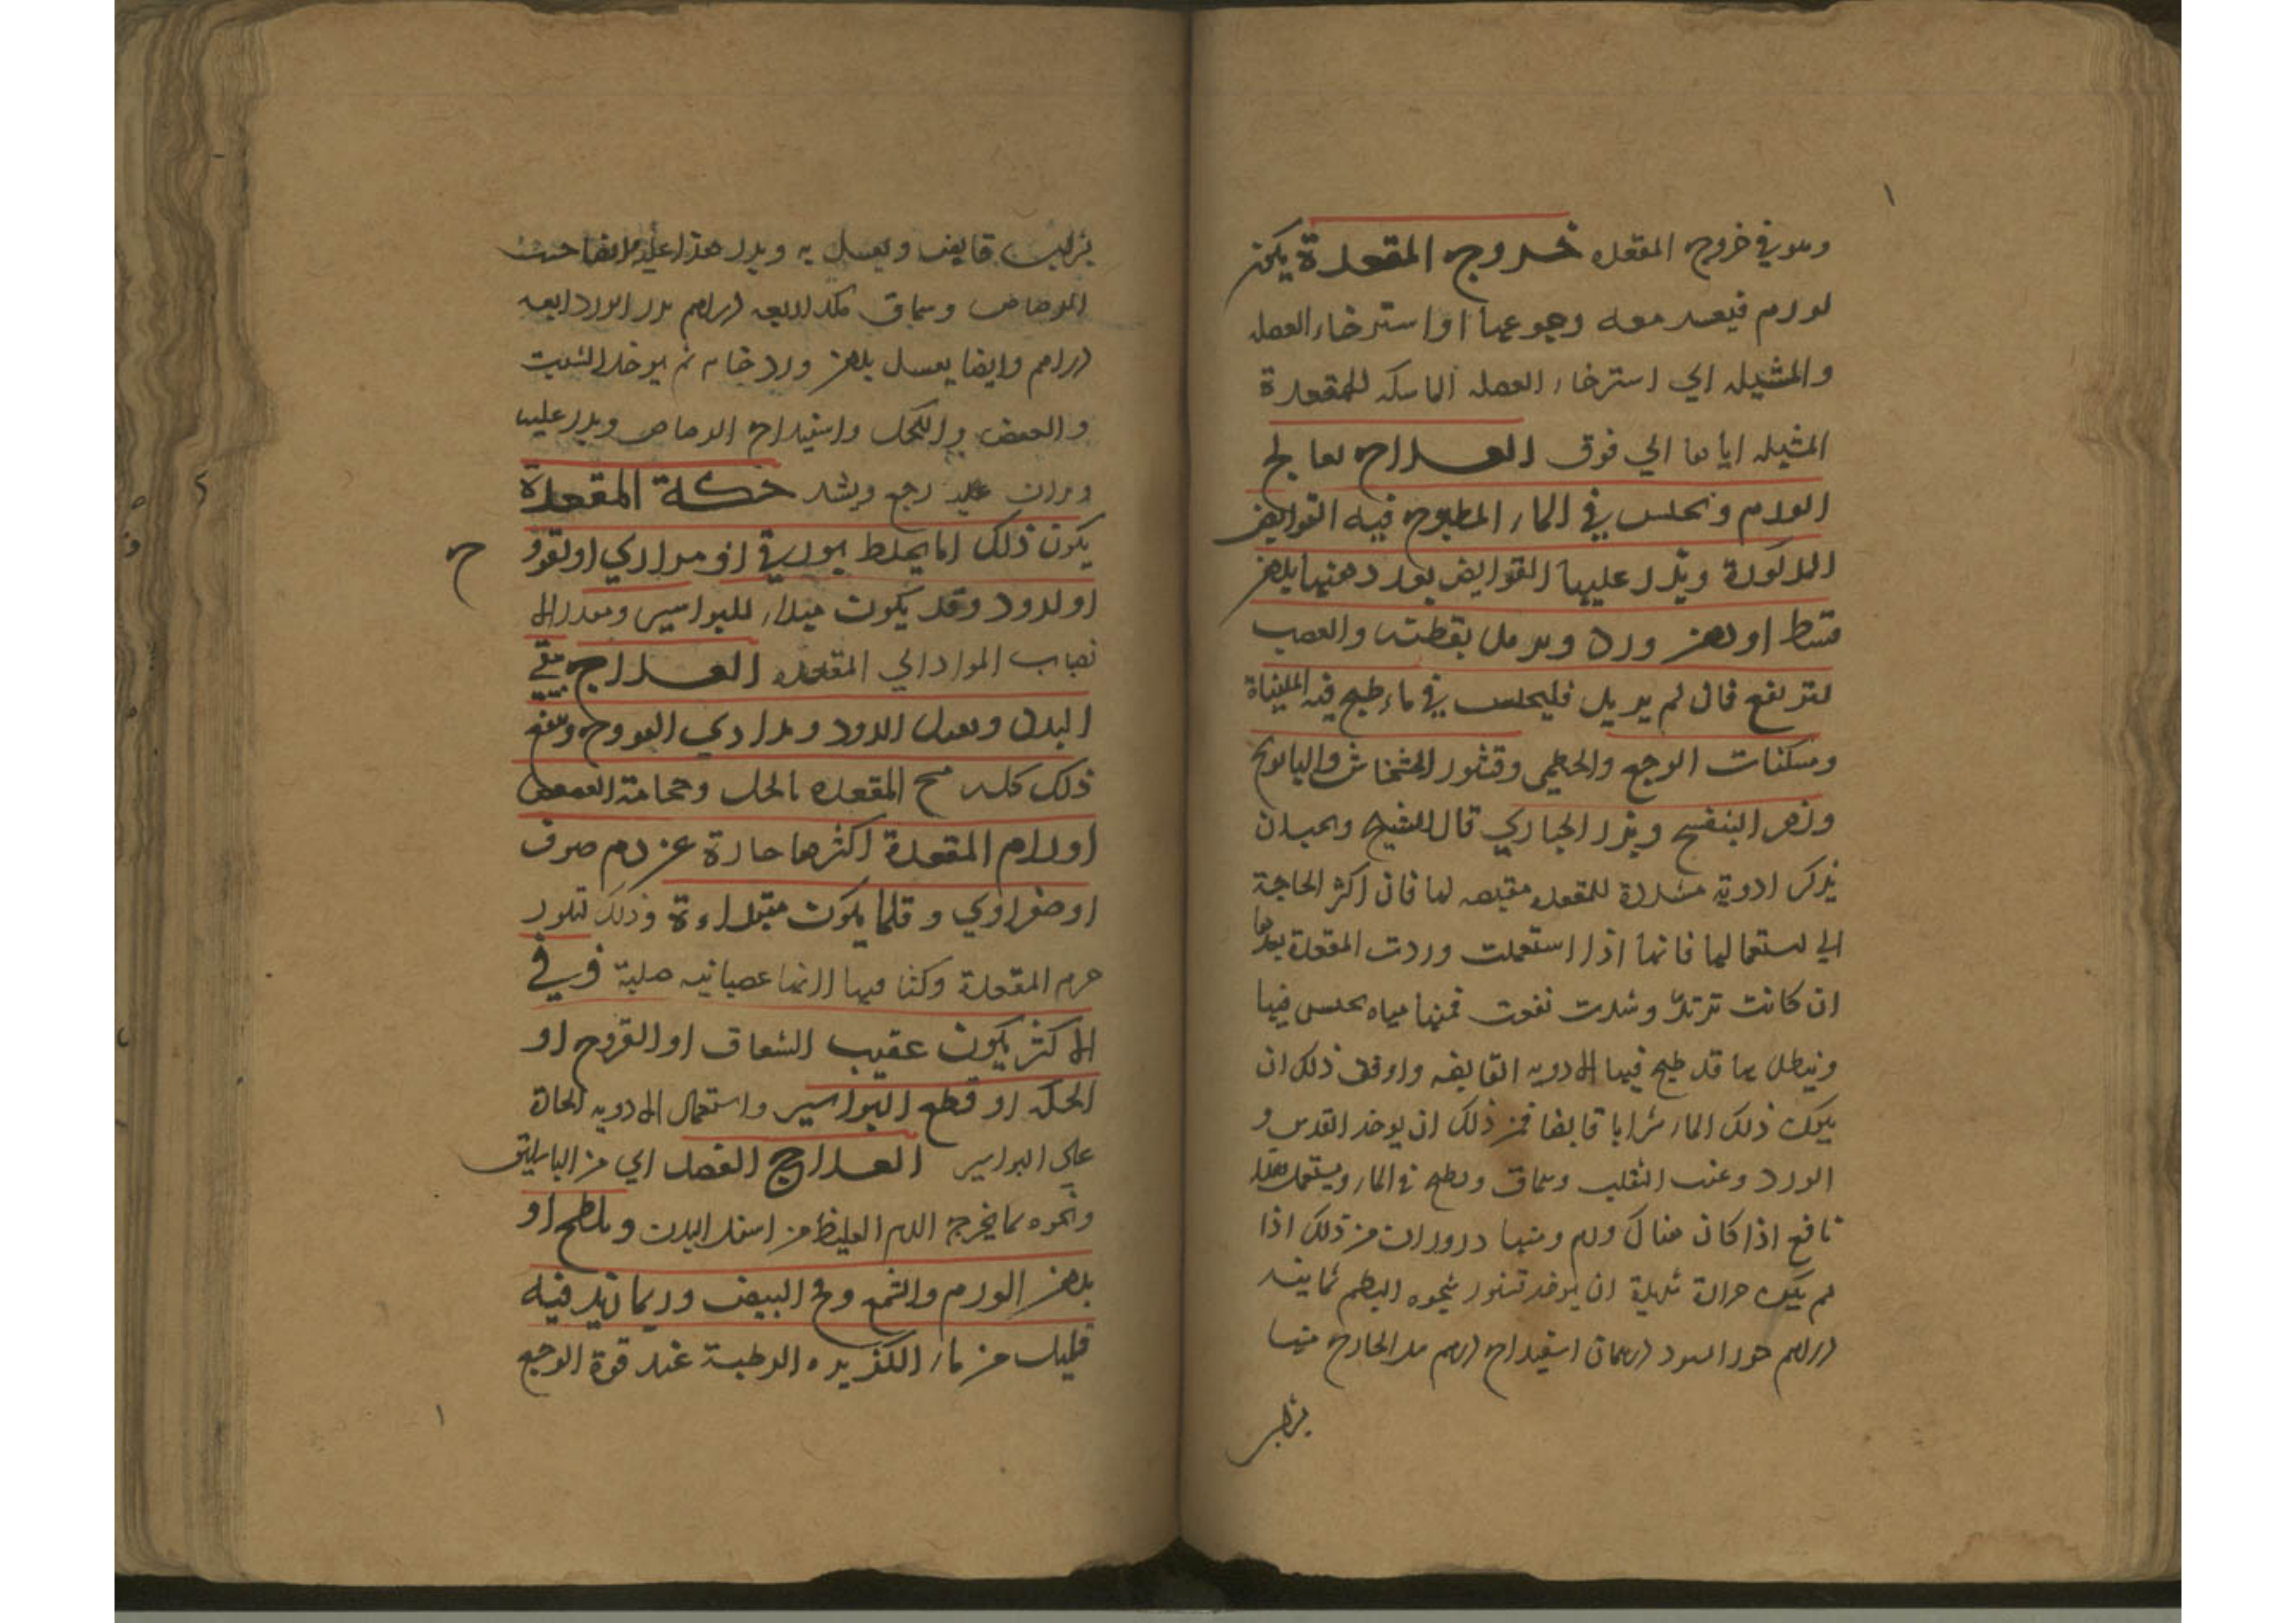 وهو في خروج المقعده خروج المقعدة يكون
لورم فيعسر معه رجوعها او استرخاء العضله
والمشيله اي استرخاء العضله الماسكه للمقعدة
المشيله اياها الي فوق العلاج يعالج
الورم ويجلس في الماء المطبوخ فيه القوابض
المذكورة ويذر عليها القوابض بعد دهنها بدهن
قسط او دهن ورد
لترتفع فان لم يزل فليجلس في ماء طبخ فيه المليناة
ومسكنات الوجع والخطمي وقشور الخشخاش والبابونج
وزهر البنفسج وبزر الخبازي قال الشيخ ويجب ان
نذكر ادوية مشددة للمقعده مقبضه لها فان اكثر الحاجة
الي استعمالها فانها اذا استعملت وردت المقعدة بعدها
ان كانت ترتد وشدت نفعت فمنها مياه يجلس فيها
وينطل بها قد طبخ فيها الادويه القابضه واوفق ذلك ان
يكون ذلك الماء شرابا قابضا فمن ذلك ان يوخذ العدس و
الورد وعنب الثعلب وسماق ويطبخ في الماء ويستعمل
نافع اذا كان هناك ورم ومنها ذرورات من ذلك اذا
لم يكن حرارة شديدة ان يوخذ قشور شجره البطم ثمانيه
دراهم اسفيداج
قابض ويغسل به ويذر هذا عليه
الرصاص وسماق
دراهم وايضا يغسل بدهن ورد خام ثم يوخذ الشبت
والعفص والكحل واسفيداج الرصاص ويذر عليه
رجع ويشد حكة المقعدة
يكون ذلك اما لخلط بورقي او مراري او لقروح
او لدود وقد يكون مبداء للبواسير ومنذرا لا
نصاب المواد الي المقعده العلاج ينقي
البدن ويقتل الدود ويداوي القروح وينفع
ذلك كله مسح المقعده بالخل وحجامة العصعص
اورام المقعدة اكثرها حارة عن دم صرف
او صفراوي وقلما يكون مبتداءة وذلك لبرد
جرم المقعدة وكثافتها لانها عصبانيه صلبة وفي
الاكثر يكون عقيب الشقاق او القروح او
الحكه او قطع البواسير واستعمال الادويه الحادة
علي البواسير العلاج الفصد اي من الباسليق
ونحوه مما يخرج الدم الغليظ من اسفل البدن ويلطخ او
بدهن الورم والشمع ومخ البيض وربما زيد فيه
قليل من ماء الكزبره الرطبة عند قوة الوجع